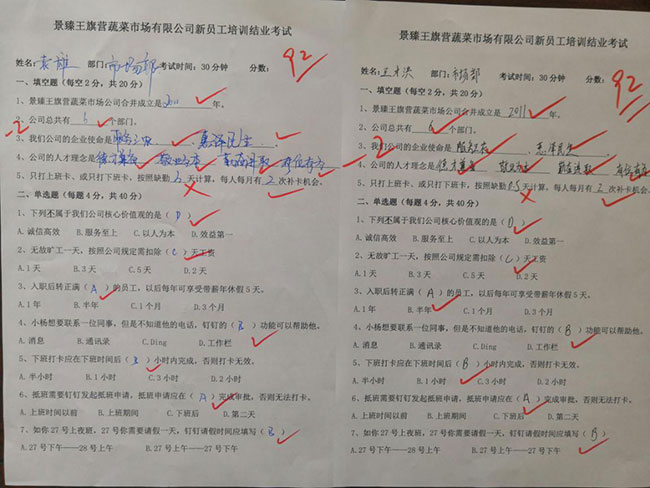 景臻王旗营蔬菜市场有限公司新员工培训结业考试
姓名: 袁雄 部门: 市场部 考试时间: 30分钟 分数: 92
一. 填空题（每空2分，共20分）
1、景臻王旗营蔬菜市场公司合并成立是 2011 年。
-2
2、公司总共有 6 个部门。
3、我们公司的企业使命是 惠泽民生。
4、公司的人才理念是 德才兼备
5、只打上班卡、或只打下班卡，按照缺勤 3 天计算，每人每月有 2 次补卡机会。
二、单选题（每题4分，共40分）
1、下列不属于我们公司核心价值观的是（ D ）
A.诚信高效 B.服务至上 C.以人为本 D.效益第一
2、无故旷工一天，按照公司规定需扣除（ C ）天工资
A.1天 B.3天 C.5天 D.2天
3、入职后转正满（ A ）的员工，以后每年可享受带薪年休假5天。
A.1年 B.半年 C.1个月 D.3个月
4、小杨想要联系一位同事，但是不知道他的电话，钉钉的（ B ）功能可以帮助他。
A.消息 B.通讯录 C.Ding D.工作栏
5、下班打卡应在下班时间后（ B ）小时内完成，否则打卡无效。
A.半小时 B.1小时 C.3小时 D.2小时
6、抵班需要钉钉发起抵班申请，抵班申请应在（ A ）完成审批，否则无法打卡。
A.上班时间以前 B.上班期间 C.下班后 D.第二天
7、如你27号上夜班，27号你需要请假一天，钉钉请假时间应填写（ B ）
A.27号下午——28号上午 B.27号上午——27号下午
景臻王旗营蔬菜市场有限公司新员工培训结业考试
姓名: 王才洪 部门: 市场部 考试时间: 30分钟 分数: 92
一. 填空题（每空2分，共20分）
1、景臻王旗营蔬菜市场公司合并成立是 2011 年。
2、公司总共有 6 个部门。
-2
3、我们公司的企业使命是
4、公司的人才理念是 德才兼备
5、只打上班卡、或只打下班卡，按照缺勤 0.5 天计算，每人每月有 2 次补卡机会。
二、单选题（每题4分，共40分）
1、下列不属于我们公司核心价值观的是（ D ）
A.诚信高效 B.服务至上 C.以人为本 D.效益第一
2、无故旷工一天，按照公司规定需扣除（ C ）天工资
A.1天 B.3天 C.5天 D.2天
3、入职后转正满（ A ）的员工，以后每年可享受带薪年休假5天。
A.1年 B.半年 C.1个月 D.3个月
4、小杨想要联系一位同事，但是不知道他的电话，钉钉的（ B ）功能可以帮助他。
A.消息 B.通讯录 C.Ding D.工作栏
5、下班打卡应在下班时间后（ B ）小时内完成，否则打卡无效。
A.半小时 B.1小时 C.3小时 D.2小时
6、抵班需要钉钉发起抵班申请，抵班申请应在（ A ）完成审批，否则无法打卡。
A.上班时间以前 B.上班期间 C.下班后 D.第二天
7、如你27号上夜班，27号你需要请假一天，钉钉请假时间应填写（ B ）
A.27号下午——28号上午 B.27号上午——27号下午